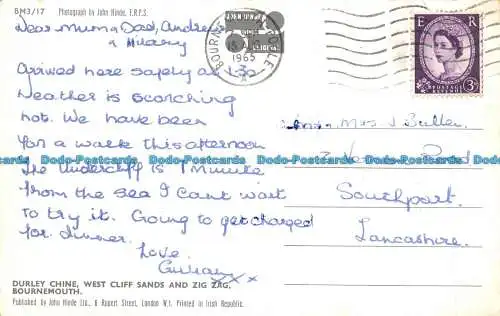 BM3/17 Photograph by John Hinde, F.R.P.S.
Dear Mum & Dad, Andrew
& Hilary
Arrived here safely at 1.30
Weather is scorching
hot. We have been
for a walk this afternoon
The Undercliff is 1 minute
from the sea I can't wait
to try it. Going to get changed
for dinner.
Love
Gillian xxx
DURLEY CHINE, WEST CLIFF SANDS AND ZIG ZAG,
BOURNEMOUTH.
Published by John Hinde Ltd., 6 Rupert Street, London W.1. Printed in Irish Republic.
BOURNE POOLE
1965
E R
POSTAGE
REVENUE
3D
Mrs J Butler.
Road
Southport.
Lancashire.
Dodo-Postcards Dodo-Postcards Dodo-Postcards Dodo-Postcards